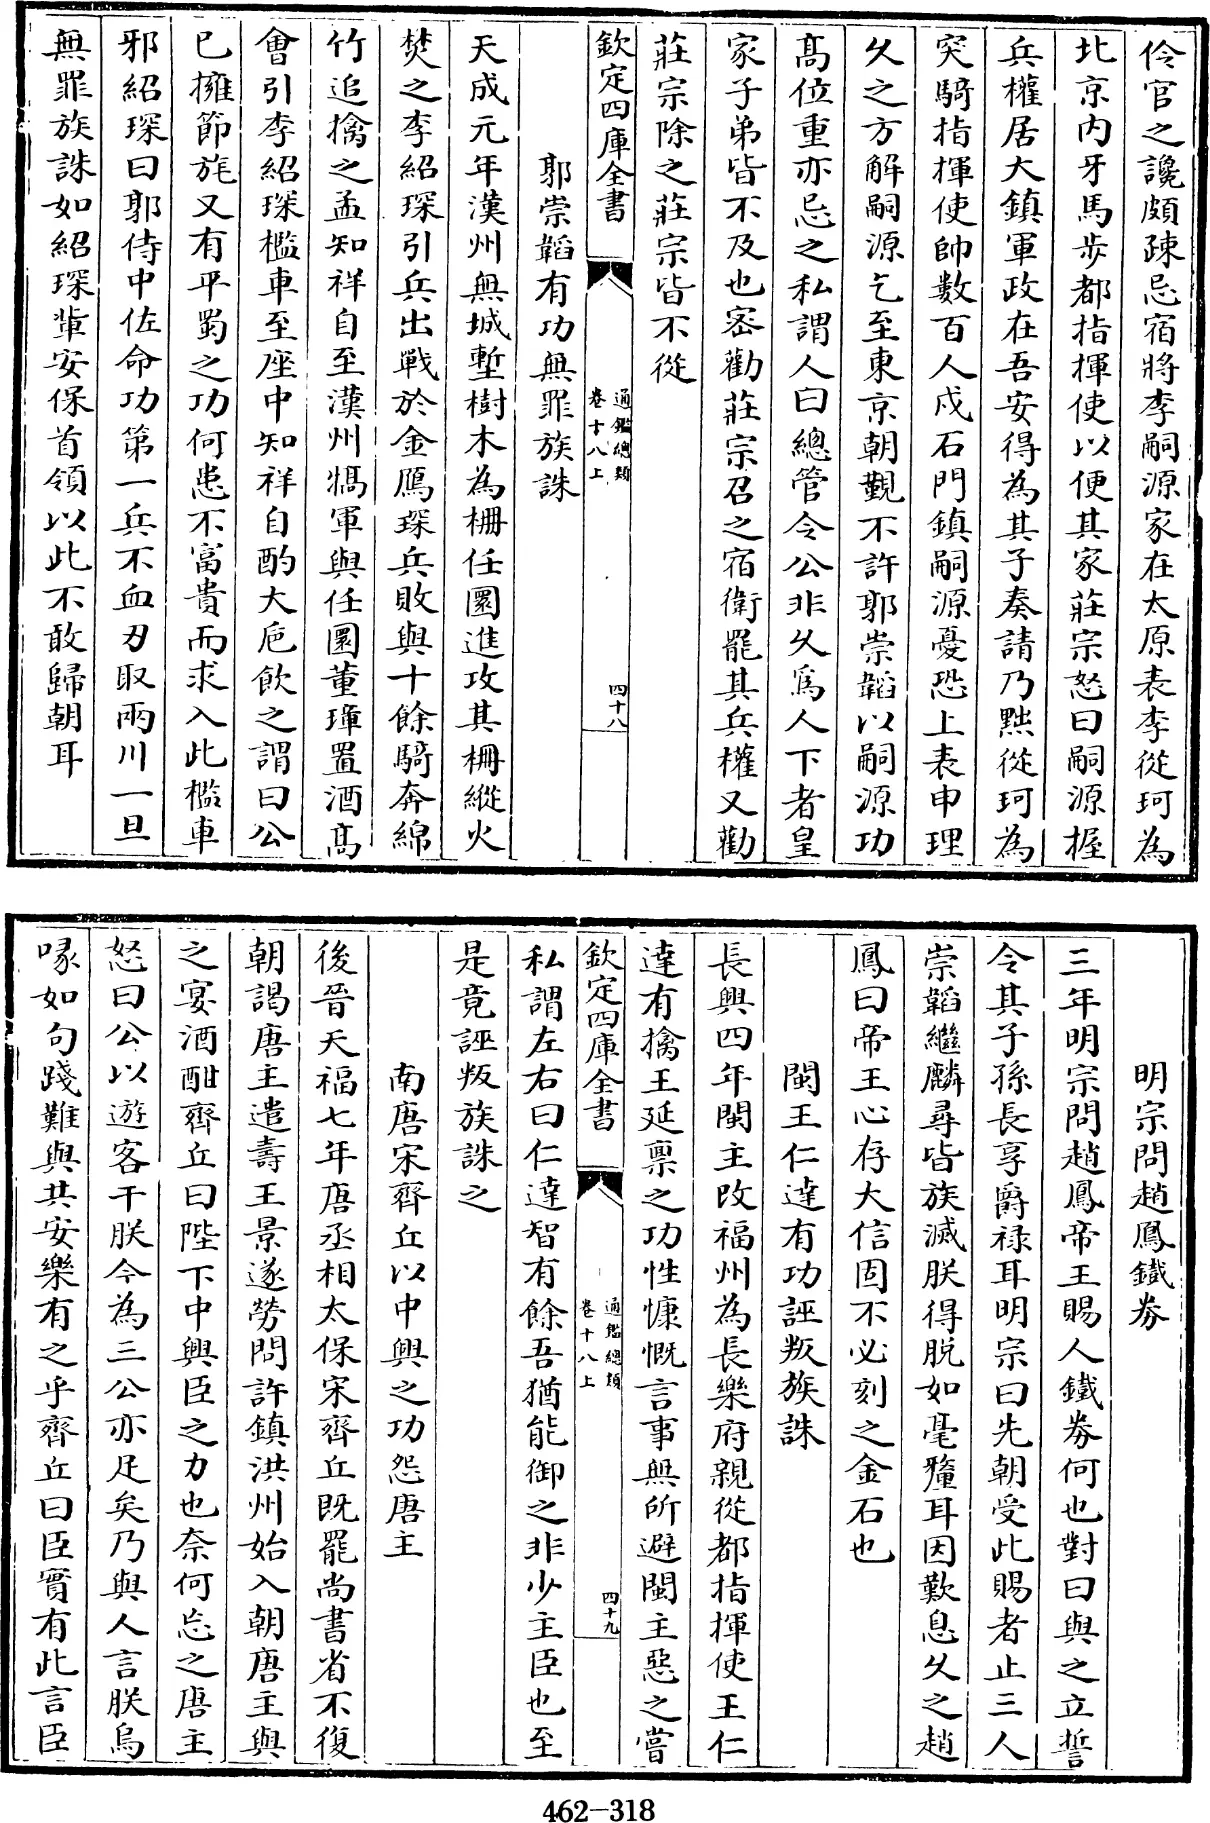 伶官之讒頗疎忌宿將李嗣源家在太原表李從珂為
北京内牙馬步都指揮使以便其家莊宗怒曰嗣源握
兵權居大鎮軍政在吾安得為其子奏請乃黜從珂為
突騎指揮使帥數百人戍石門鎮嗣源憂恐上表申理
乆之方解嗣源乞至東京朝覲不許郭崇韜以嗣源功
髙位重亦忌之私謂人曰總管令公非乆爲人下者皇
家子弟皆不及也宻勸莊宗召之宿衛罷其兵權又勸
莊宗除之莊宗皆不從
欽定四庫全書
通鑑總類
卷十八上
四十八
郭崇韜有功無罪族誅
天成元年漢州無城塹樹木為柵任圜進攻其柵縱火
焚之李紹琛引兵出戰於金鴈琛兵敗與十餘騎奔綿
竹追擒之孟知祥自至漢州犒軍與任圜董璋置酒髙
會引李紹琛檻車至座中知祥自酌大巵飲之謂曰公
已擁節旄又有平蜀之功何患不富貴而求入此檻車
邪紹琛曰郭侍中佐命功第一兵不血刃取兩川一旦
無罪族誅如紹琛軰安保首領以此不敢歸朝耳
明宗問趙鳳鐵劵
三年明宗問趙鳳帝王賜人鐵劵何也對曰與之立誓
令其子孫長享爵禄耳明宗曰先朝受此賜者止三人
崇韜繼麟尋皆族滅朕得脱如毫釐耳因歎息乆之趙
鳳曰帝王心存大信固不必刻之金石也
閩王仁達有功誣叛族誅
長興四年閩主改福州為長樂府親從都指揮使王仁
達有擒王延禀之功性慷慨言事無所避閩主惡之嘗
欽定四庫全書
通鑑總類
卷十八上
四十九
私謂左右曰仁達智有餘吾猶能御之非少主臣也至
是竟誣叛族誅之
南唐宋齊丘以中興之功怨唐主
後晉天福七年唐丞相太保宋齊丘既罷尚書省不復
朝謁唐主遣壽王景遂勞問許鎮洪州始入朝唐主與
之宴酒酣齊丘曰陛下中興臣之力也奈何忘之唐主
怒曰公以遊客干朕今為三公亦足矣乃與人言朕烏
喙如句踐難與共安樂有之乎齊丘曰臣實有此言臣
462-318